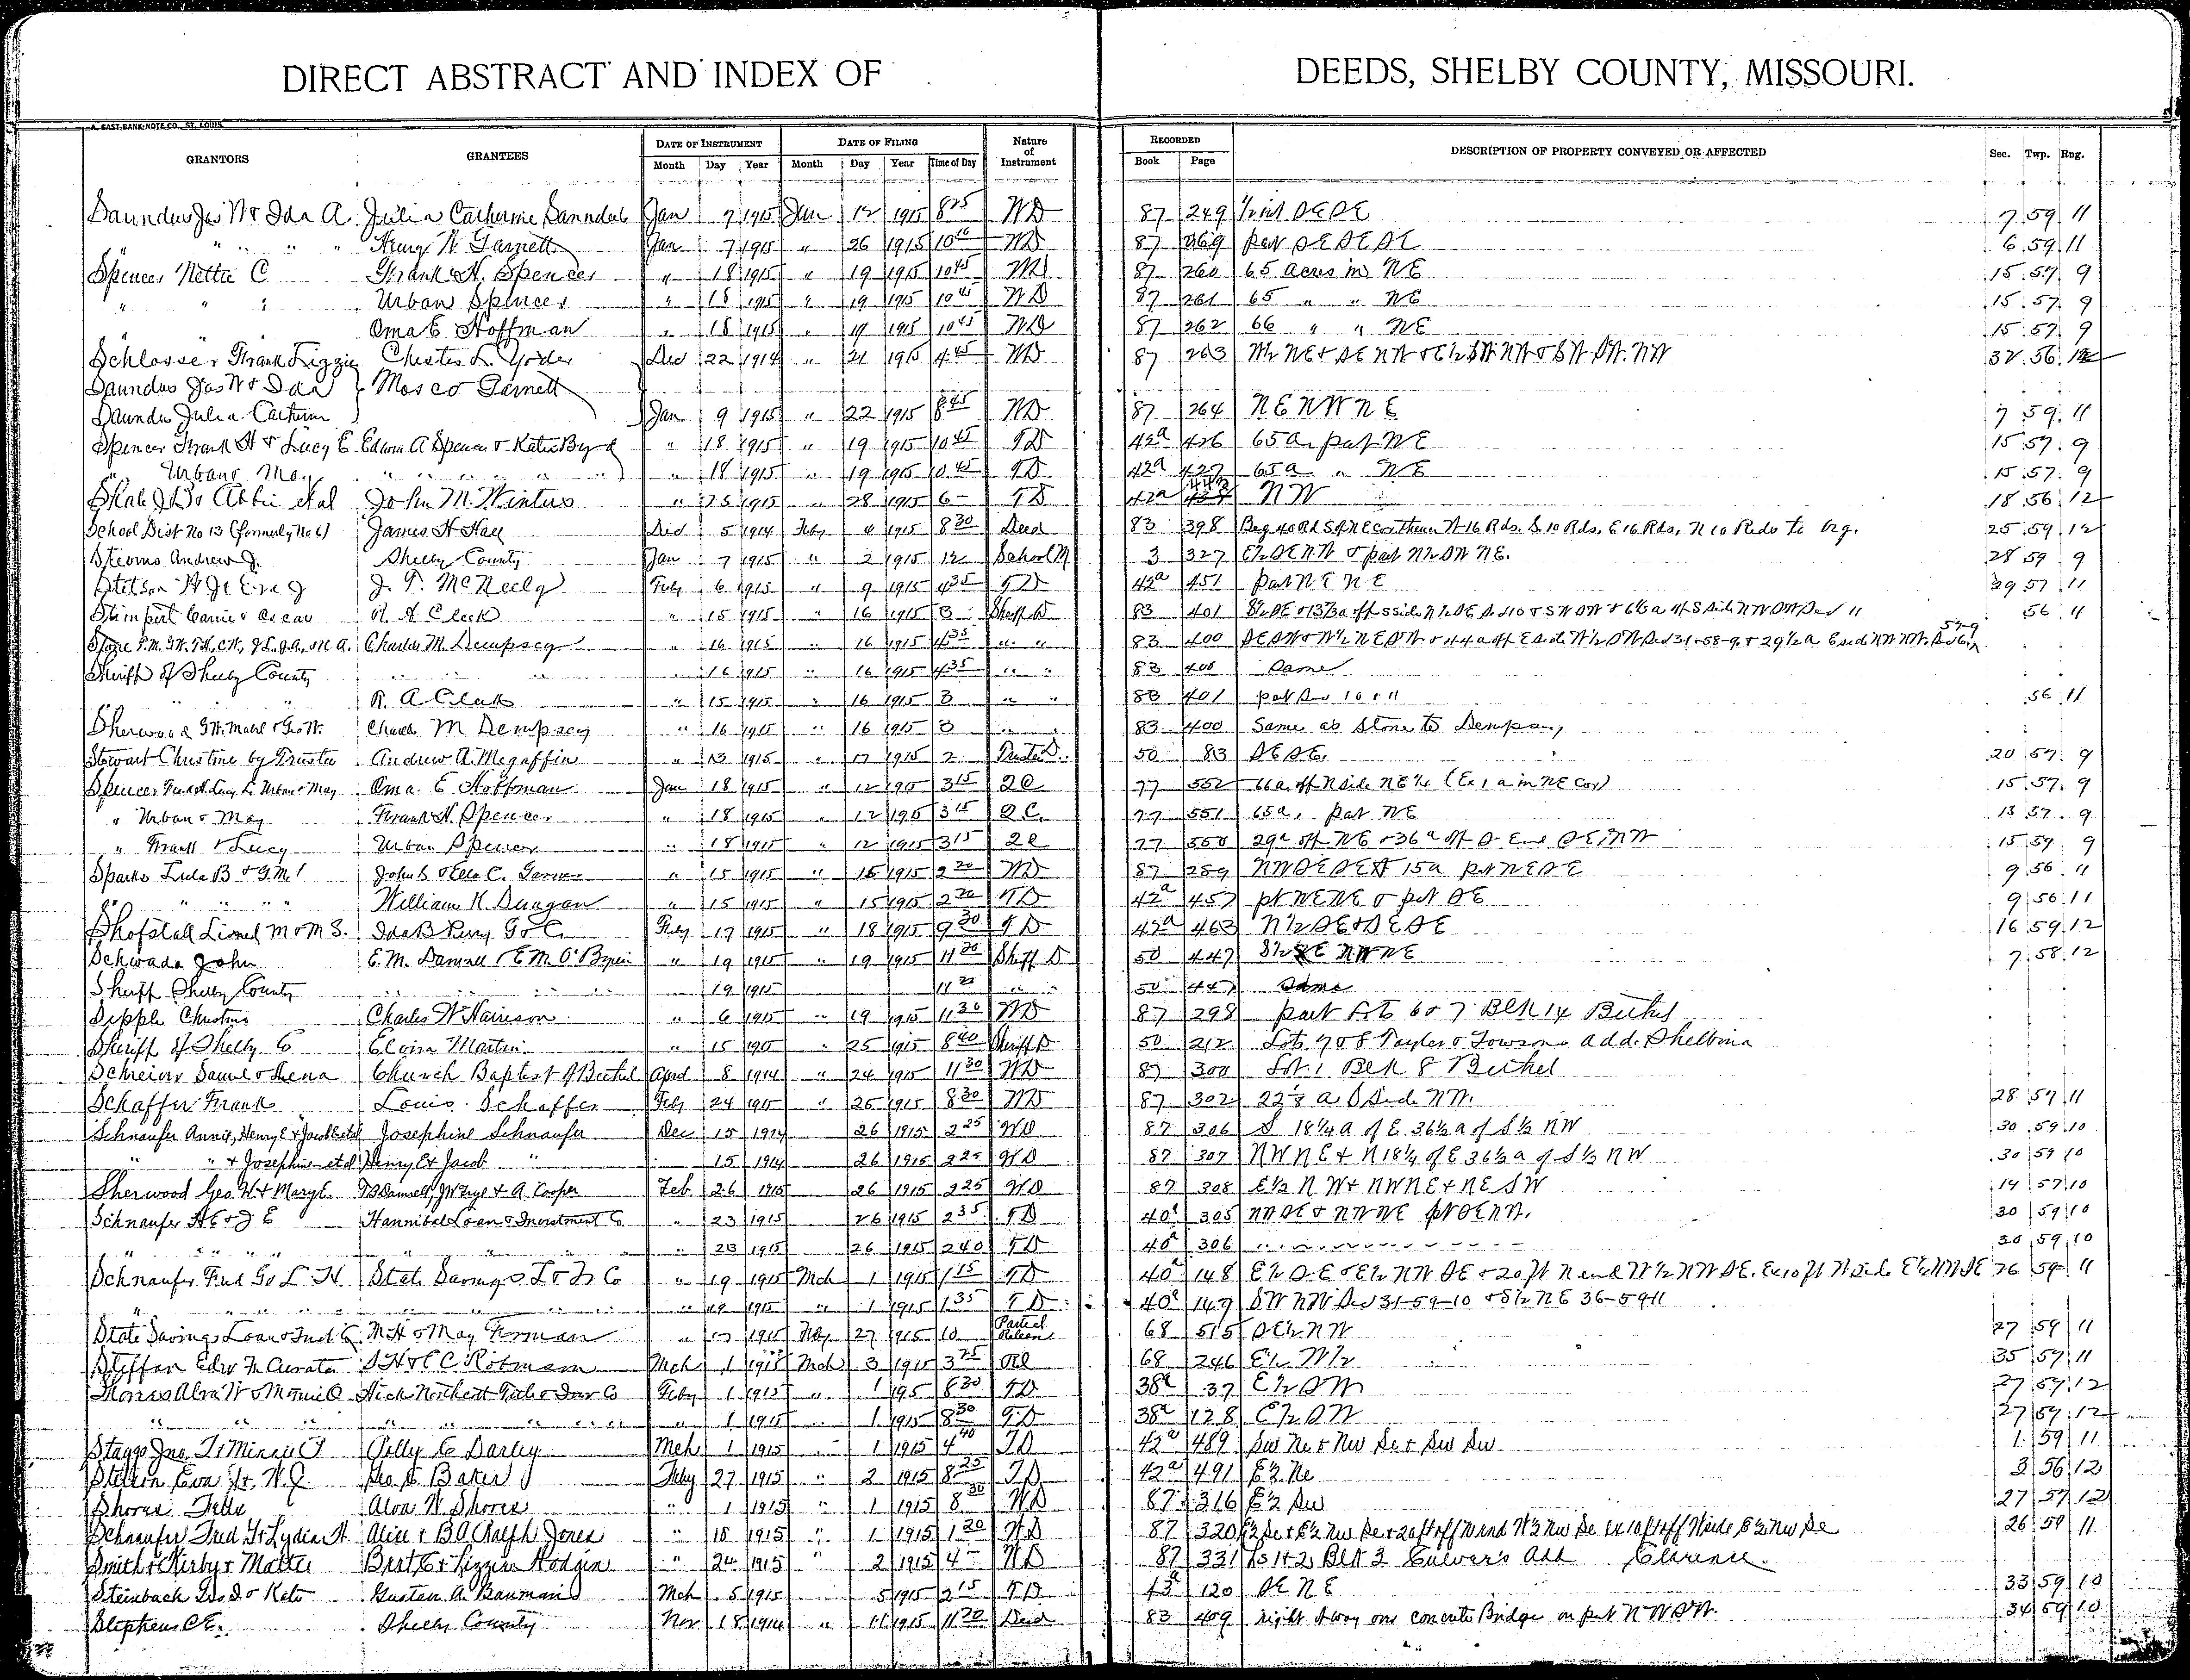 DIRECT ABSTRACT AND INDEX OF DEEDS, SHELBY COUNTY, MISSOURI.
A. EAST BANK NOTE CO., ST. LOUIS
GRANTORS GRANTEES DATE OF INSTRUMENT DATE OF FILING Nature of Instrument RECORDED DESCRIPTION OF PROPERTY CONVEYED OR AFFECTED Sec. Twp. Rng.
Month Day Year Month Day Year Time of Day Book Page
Saunders Jas W & Ida A. Julia Catherine Saunders Jan 7 1915 Jan 12 1915 8 25 WD 87 249 SESE 7 59 11
" " " " Henry W Garnett Jan 7 1915 " 26 1915 10 WD 87 269 part SESESE 6 59 11
Spencer Nettie C Frank H. Spencer " 18 1915 " 19 1915 10 45 WD 87 260 65 acres in NE 15 57 9
" " " Urban Spencer " 18 1915 " 19 1915 10 45 WD 87 261 65 " " NE 15 57 9
Oma E Hoffman " 18 1915 " 19 1915 10 45 WD 87 262 66 " " NE 15 57 9
Schlosser Frank Lizzie Chester L. Yoder Dec 22 1914 " 21 1915 4 45 WD 87 263 56
Saunders Jas W & Ida } Mosco Garnett
Saunders Julia Cathern Jan 9 1915 " 22 1915 8 45 WD 87 264 NENWNE 7 59 11
Spencer Frank H & Lucy E Edwin A Spencer & Katie Byrd " 18 1915 " 19 1915 10 45 TD 42a 426 65 a. part NE 15 57 9
" Urban & May " " " " 18 1915 " 19 1915 10 45 TD 42a 427 65a " NE 15 57 9
Abbie et al John M. Winters " 25 1915 " 28 1915 6 - TD 42a NW 18 56 12
School Dist No 13 (formerly No 6) James H Hall Dec 5 1914 Feby 4 1915 8 30 Deed 83 398 Beg 40 Rd S of NE cor thence W 16 Rds. S 10 Rds, E 16 Rds, N 10 Rds to beg. 25 59 12
Stearns Andrew J. Shelby County Jan 7 1915 " 2 1915 12 School M 3 327 E½SENW & part N½SWNE. 28 59 9
Stetson W J & Eva J J. P. McNeely Feby 6 1915 " 9 1915 4 35 TD 42a 451 part NENE 29 57 11
Stimpert Carrie & Oscar R. A Clark " 15 1915 " 16 1915 3 Sheff D 83 401 56 11
Stone Charles M. Dempsey " 16 1915 " 16 1915 4 35 " " 83 400
Sheriff of Shelby County " " 16 1915 " 16 1915 4 35 " " 83 400 Same
" " R. A Clark " 15 1915 " 16 1915 3 " " 83 401 part Sec 10 & 11 56 11
Sherwood Mabel & Geo W. Charles M Dempsey " 16 1915 " 16 1915 3 " " 83 400 Same as Stone to Dempsey
Stewart Christine by Trustee Andrew A. Megaffin " 13 1915 " 17 1915 2 Trustee D. 50 83 SESE. 20 57 9
Spencer Frank H. Lucy E. Urban & May Oma E Hoffman Jan 18 1915 " 12 1915 3 15 QC 77 552 66a off N side NE¼ (Ex 1 a in NE cor) 15 57 9
" Urban & May Frank H. Spencer " 18 1915 " 12 1915 3 15 QC. 77 551 65a, part NE 15 57 9
" Frank & Lucy Urban Spencer " 18 1915 " 12 1915 3 15 QC 77 550 29a off NE & 36a off S End SE NW 15 57 9
Sparks Lula B & G.M. John S & Ella C. " 15 1915 " 15 1915 2 20 WD 87 289 15a 9 56 11
" " " " William K. Dungan " 15 1915 " 15 1915 2 20 TD 42a 457 pt NENE & part SE 9 56 11
Shofstall Lionel M & M S. Ida B Perry Feby 17 1915 " 18 1915 9 30 TD 42a 463 N½SE & SESE 16 59 12
Schwada John E. M. Damrell & E M O'Brien " 19 1915 " 19 1915 11 20 Sheff D 50 447 7 58 12
Sheriff Shelby County " " " 19 1915 11 20 " " 50 447 Same
Sipple Christina Charles W Harrison " 6 1915 " 19 1915 11 30 WD 87 298 part Lots 6 & 7 Blk 14 Bethel
Sheriff of Shelby Co Elvira Martin " 15 1915 " 25 1915 8 40 Sheriff D 50 212 Lots 7 & 8 Taylor & Towson add. Shelbina
Schreiver Saml & Lena Church Baptist of Bethel April 8 1914 " 24 1915 11 30 WD 87 300 Lot 1 Blk 8 Bethel
Schaffer Frank Louis Schaffer Feby 24 1915 " 25 1915 8 30 WD 87 302 a S Side NW. 28 59 11
Schnaufer Annie, Henry E & Jacob et al Josephine Schnaufer Dec 15 1914 26 1915 2 25 WD 87 306 S 18¼ a of E. 36½ a of S½ NW 30 59 10
" " & Josephine et al Henry E & Jacob " 15 1914 26 1915 2 25 WD 87 307 NWNE & N 18¼ of E 36½ a of S½ NW 30 59 10
Sherwood Geo W & Mary E. T B Damrell, & A Cooper Feb 26 1915 26 1915 2 25 WD 87 308 E½ NW & NWNE & NE SW 14 57 10
Schnaufer H E & J E Hannibal Loan & Investment Co " 23 1915 26 1915 2 35 TD 40a 305 30 59 10
" " " " " " " 23 1915 26 1915 2 40 TD 40a 306 " " " 30 59 10
Schnaufer Fred G & L H State Savings L & Tr Co " 19 1915 Mch 1 1915 1 15 TD 40a 148 59 11
" " " " " " " 19 1915 " 1 1915 1 35 TD 40a 149 SWNW Sec 31-59-10 & S½ NE 36-59-11
State Savings Loan & Trust Co N. H & May Forman " 17 1915 Feby 27 1915 10 Partial Release 68 515 27 59 11
Steffan Edw F. Curator S H & C C Rotman Mch 1 1915 Mch 3 1915 3 25 Rel 68 246 E½ W½ 35 57 11
Shores Alva W & Mamie O Feby 1 1915 " 1 1915 8 30 TD 38a 37 E½SW 27 57 12
" " " " " " " 1 1915 " 1 1915 8 30 TD 38a 128 E½SW 27 57 12
Staggs Jno. T & Minnie J Polly E Darley Mch 1 1915 " 1 1915 4 40 TD 42a 489 Sw Ne & Nw Se & Sw Sw 1 59 11
Stetson Eva J & W. J. Geo. E Baker Feby 27 1915 " 2 1915 8 25 TD 42a 491 E½ Ne 3 56 12
Shores Alva W. Shores " 1 1915 " 1 1915 8 30 WD 87 316 E½ Sw 27 57 12
Schnaufer Fred G & Lydia H. Alice & B.A. Ralph Jones " 18 1915 " 1 1915 1 20 WD 87 320 E½ Se & E½ Nw Se & 20 ft off N end W½ Nw Se Ex 10 ft off N side E½ Nw Se 26 59 11
Smith Kirby & Mattie Bert E & Lizzie Hodgin " 24 1915 " 2 1915 4 - WD 87 331 Ls 1 & 2 Blk 3 Culver's Add Clarence.
Steinbach & Kate Gustav A. Bauman Mch 5 1915 5 1915 2 15 TD 43a 120 SENE 33 59 10
Stephens C E. Shelby County Nov 18 1914 " 11 1915 11 20 Deed 83 409 right of way one concrete Bridge on part NWSW. 34 59 10